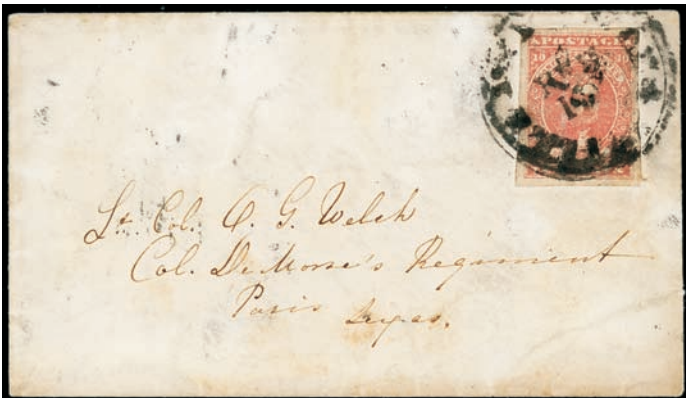 POSTAGE
10 10
Lt. Col. O. G. Welch
Col. DeMorse's Regiment
Paris
Texas.